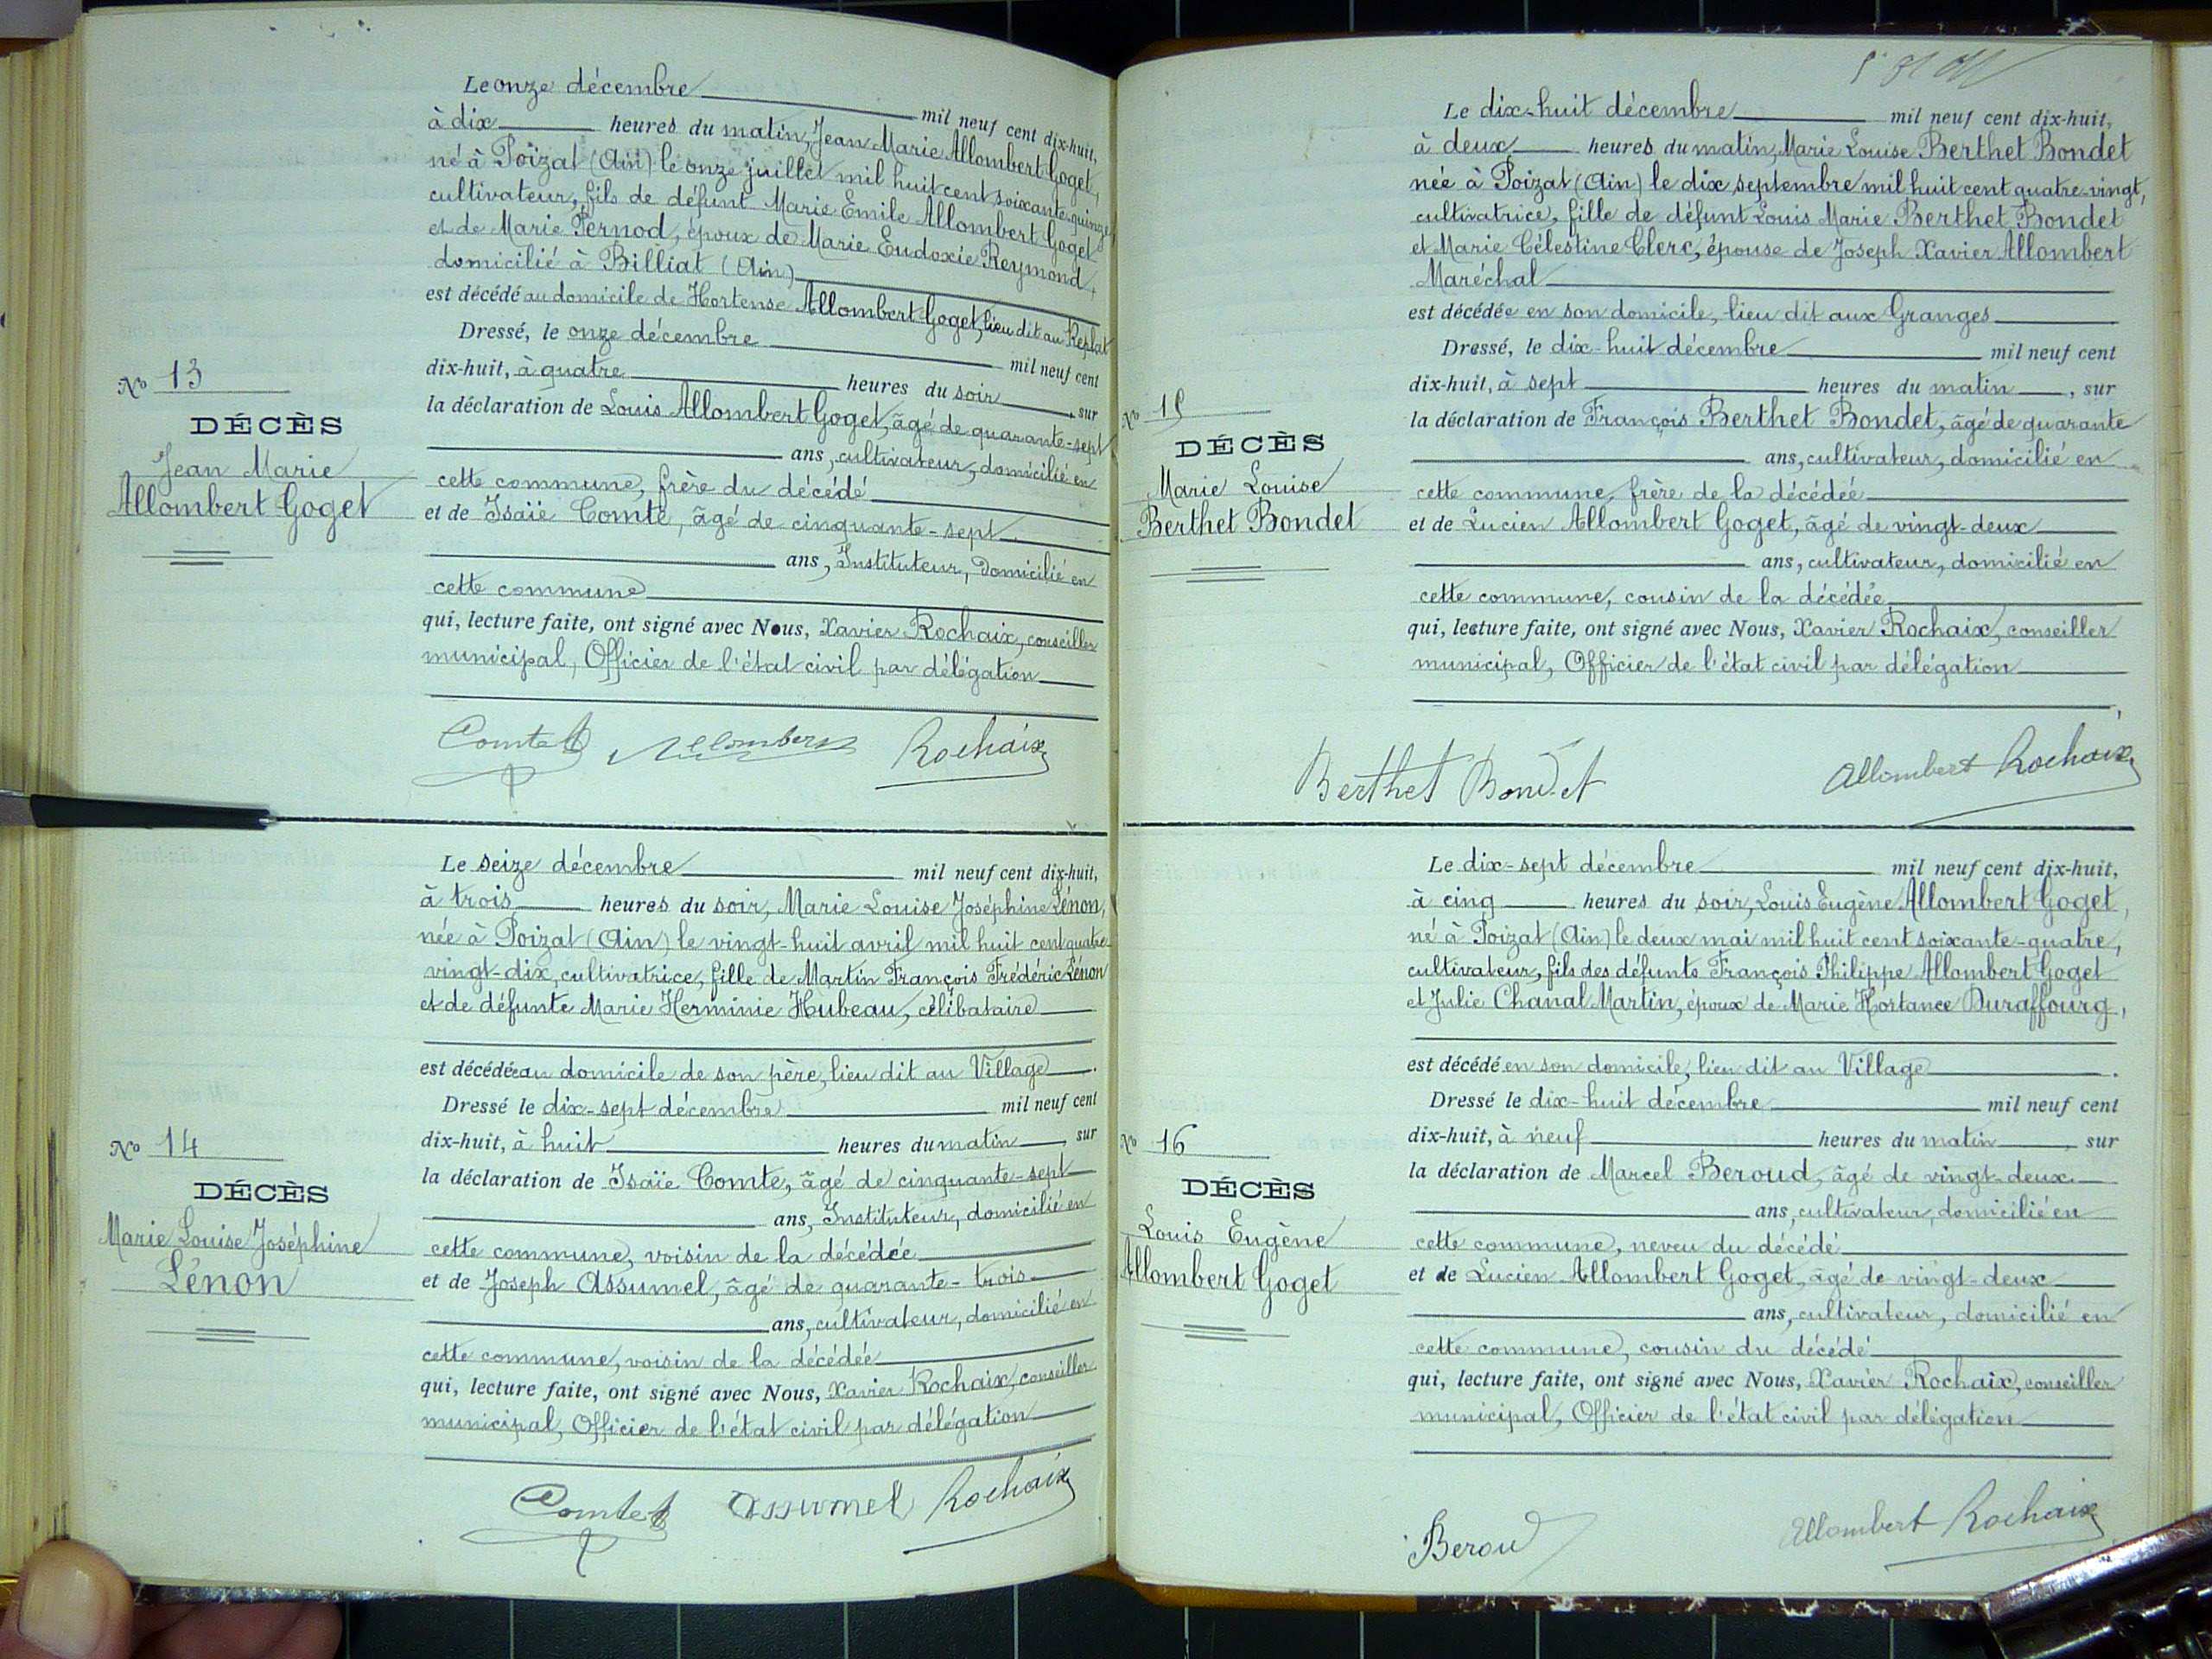 Le onze décembre mil neuf cent dix-huit,
à dix heures du matin, Jean Marie Allombert Goget,
né à Poizat (Ain) le onze juillet mil huit cent soixante-quinze,
cultivateur, fils de défunt Marie Emile Allombert Goget
et de Marie Pernod, époux de Marie Eudoxie Reymond,
domicilié à Billiat (Ain)
est décédé au domicile de Hortense Allombert-Goget, lieu dit au Replat
Dressé, le onze décembre mil neuf cent
dix-huit, à quatre heures du soir, sur
la déclaration de Louis Allombert Goget, âgé de quarante-sept
ans, cultivateur, domicilié en
cette commune, frère du décédé
et de Isaïe Comte, âgé de cinquante-sept
ans, Instituteur, domicilié en
cette commune
qui, lecture faite, ont signé avec Nous, Xavier Rochaix, conseiller
municipal, Officier de l'état civil par délégation
Comte Allombert Rochaix
No 13
DÉCÈS
Jean Marie
Allombert Goget
Le seize décembre mil neuf cent dix-huit,
à trois heures du soir, Marie Louise Joséphine Lénon,
née à Poizat (Ain) le vingt-huit avril mil huit cent quatre-
vingt-dix, cultivatrice, fille de Martin François Frédéric Lénon
et de défunte Marie Herminie Hubeau, célibataire
est décédée au domicile de son père, lieu dit au Village.
Dressé le dix-sept décembre mil neuf cent
dix-huit, à huit heures du matin, sur
la déclaration de Isaïe Comte, âgé de cinquante-sept
ans, Instituteur, domicilié en
cette commune, voisin de la décédée
et de Joseph Assumel, âgé de quarante-trois
ans, cultivateur, domicilié en
cette commune, voisin de la décédée
qui, lecture faite, ont signé avec Nous, Xavier Rochaix, conseiller
municipal, Officier de l'état civil par délégation
Comte Assumel Rochaix
No 14
DÉCÈS
Marie Louise Joséphine
Lénon
Le dix-huit décembre mil neuf cent dix-huit,
à deux heures du matin, Marie Louise Berthet Bondet
née à Poizat (Ain) le dix septembre mil huit cent quatre-vingt,
cultivatrice, fille de défunt Louis Marie Berthet Bondet
et Marie Célestine Clerc, épouse de Joseph Xavier Allombert
Maréchal
est décédée en son domicile, lieu dit aux Granges.
Dressé, le dix-huit décembre mil neuf cent
dix-huit, à sept heures du matin, sur
la déclaration de François Berthet Bondet, âgé de quarante
ans, cultivateur, domicilié en
cette commune, frère de la décédée
et de Lucien Allombert Goget, âgé de vingt-deux
ans, cultivateur, domicilié en
cette commune, cousin de la décédée
qui, lecture faite, ont signé avec Nous, Xavier Rochaix, conseiller
municipal, Officier de l'état civil par délégation
Berthet Bondet Allombert Rochaix
No 15
DÉCÈS
Marie Louise
Berthet Bondet
Le dix-sept décembre mil neuf cent dix-huit,
à cinq heures du soir, Louis Eugène Allombert Goget,
né à Poizat (Ain) le deux mai mil huit cent soixante-quatre,
cultivateur, fils des défunts François Philippe Allombert Goget
et Julie Chanal Martin, époux de Marie Hortance Duraffourg,
est décédé en son domicile, lieu dit au Village.
Dressé le dix-huit décembre mil neuf cent
dix-huit, à neuf heures du matin, sur
la déclaration de Marcel Beroud, âgé de vingt-deux
ans, cultivateur, domicilié en
cette commune, neveu du décédé
et de Lucien Allombert Goget, âgé de vingt-deux
ans, cultivateur, domicilié en
cette commune, cousin du décédé
qui, lecture faite, ont signé avec Nous, Xavier Rochaix, conseiller
municipal, Officier de l'état civil par délégation
Beroud Allombert Rochaix
No 16
DÉCÈS
Louis Eugène
Allombert Goget